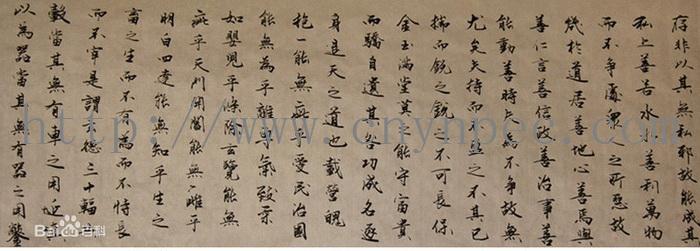 存非以其無私耶故能成其
私上善若水水善利萬物
而不爭處衆人之所惡故
幾於道居善地心善焉與
善仁言善信政善治事善
能動善時夫為不爭故無
尤矣持而盈之不其已
揣而銳之銳不可長保
金玉滿堂莫之能守富貴
而驕自遺其咎功成名遂
身退天之道也載營魄
抱一能無疵乎愛民治國
能無為乎離乎氣致柔
如嬰兒乎滌除玄覽能無
疵乎天門開闔能無雌乎
明白四達能無知乎生之
畜之生而不有為而不恃長
而不宰是謂玄德三十輻
轂當其無有車之用埏
以為器當其無有器之用鑿
http://www.cnynpec.
Bai百科